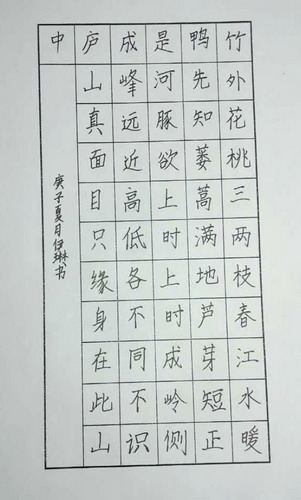 竹外花桃三两枝春江水暖
鸭先知蒌蒿满地芦芽短正
是河豚欲上时上时成岭侧
成峰远近高低各不同不识
庐山真面目只缘身在此山
中
庚子夏月伊琳书